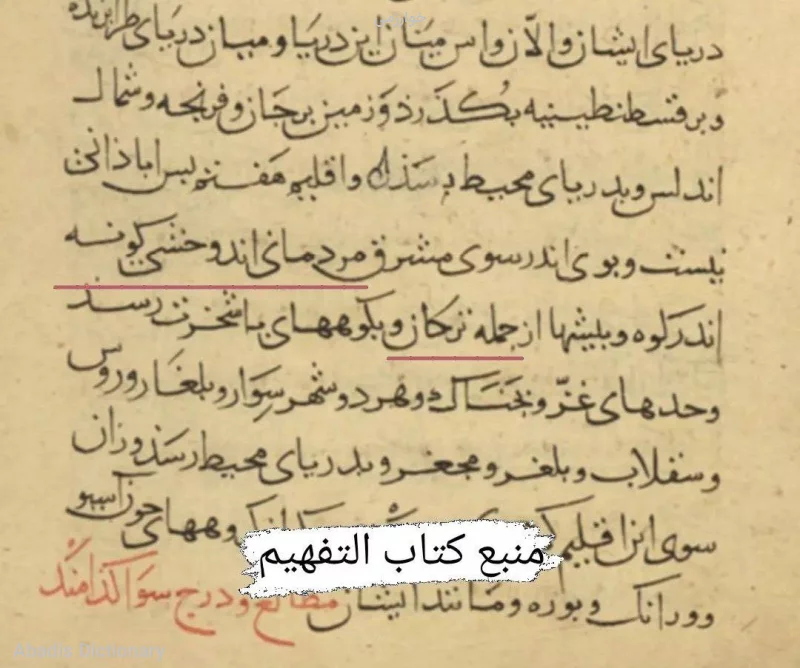 دریای ایشان والان واس میان این دریا و میان دریای طرابزنده
و بر قسطنطینیه بگذرذ و زمین برجان و فرنجه و شمال
اندلس و بدریای محیط و اقلیم هفتم بس اباذانی
نیست و بوی اندر سوی مشرق مردمانی اند وحشی کونه
اندر کوه و بیشها از جمله ترکان و بکوههای باشخرت رسذ
وحدهای غز و بجناک و هر دو شهر سوار و بلغار و روس
و سقلاب و بلغر و مجغر و بدریای محیط رسذ وزان
سوی این اقلیم
منبع کتاب التفهیم
کوههای چون آیسو
وورانک و یوره و مانند ایشان مطالع و درج سوا کذامند
Abadis Dictionary